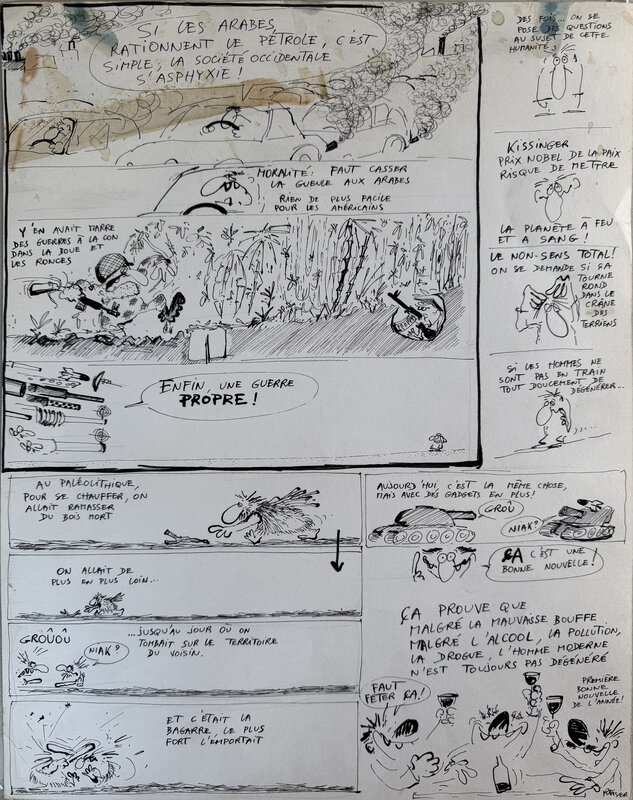 SI LES ARABES,
RATIONNENT LE PÉTROLE, C'EST
SIMPLE, LA SOCIÉTÉ OCCIDENTALE
S'ASPHYXIE !
MORALITÉ: FAUT CASSER
LA GUEULE AUX ARABES
RIEN DE PLUS FACILE
POUR LES AMÉRICAINS
Y'EN AVAIT MARRE
DES GUERRES À LA CON
DANS LA BOUE ET
LES RONCES
ENFIN, UNE GUERRE
PROPRE !
DES FOIS... ON SE
POSE DES QUESTIONS
AU SUJET DE CETTE
HUMANITÉ !
KISSINGER
PRIX NOBEL DE LA PAIX
RISQUE DE METTRE
LA PLANÈTE À FEU
ET A SANG !
LE NON-SENS TOTAL !
ON SE DEMANDE SI ÇA
TOURNE
ROND
DANS LE
CRÂNE
DES
TERRIENS
SI LES HOMMES NE
SONT PAS EN TRAIN
TOUT DOUCEMENT DE
DÉGÉNÉRER...
AU PALÉOLITHIQUE,
POUR SE CHAUFFER, ON
ALLAIT RAMASSER
DU BOIS MORT
ON ALLAIT DE
PLUS EN PLUS LOIN...
GROÛOÛ
NIAK?
...JUSQU'AU JOUR OÙ ON
TOMBAIT SUR LE TERRITOIRE
DU VOISIN.
ET C'ÉTAIT LA
BAGARRE, LE PLUS
FORT L'EMPORTAIT
AUJOURD'HUI, C'EST LA MÊME CHOSE,
MAIS AVEC DES GADGETS EN PLUS !
GROÛ
NIAK?
ÇA C'EST UNE
BONNE NOUVELLE !
ÇA PROUVE QUE
MALGRÉ LA MAUVASSE BOUFFE
MALGRÉ L'ALCOOL, LA POLLUTION,
LA DROGUE, L'HOMME MODERNE
N'EST TOUJOURS PAS DÉGÉNÉRÉ
FAUT
FÊTER ÇA !
PREMIÈRE
BONNE
NOUVELLE
DE L'ANNÉE !
REISER